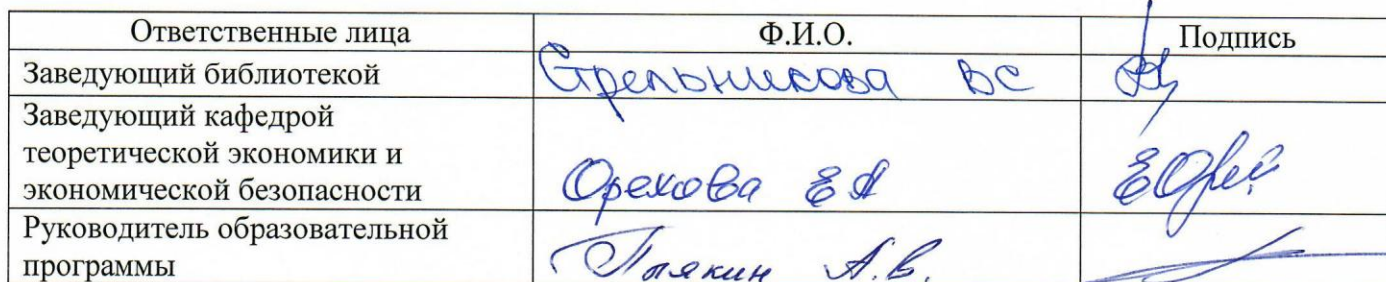 Ответственные лица Ф.И.О. Подпись
Заведующий библиотекой Стрельникова ВС
Заведующий кафедрой
теоретической экономики и
экономической безопасности Орехова ЕА
Руководитель образовательной
программы А.В.